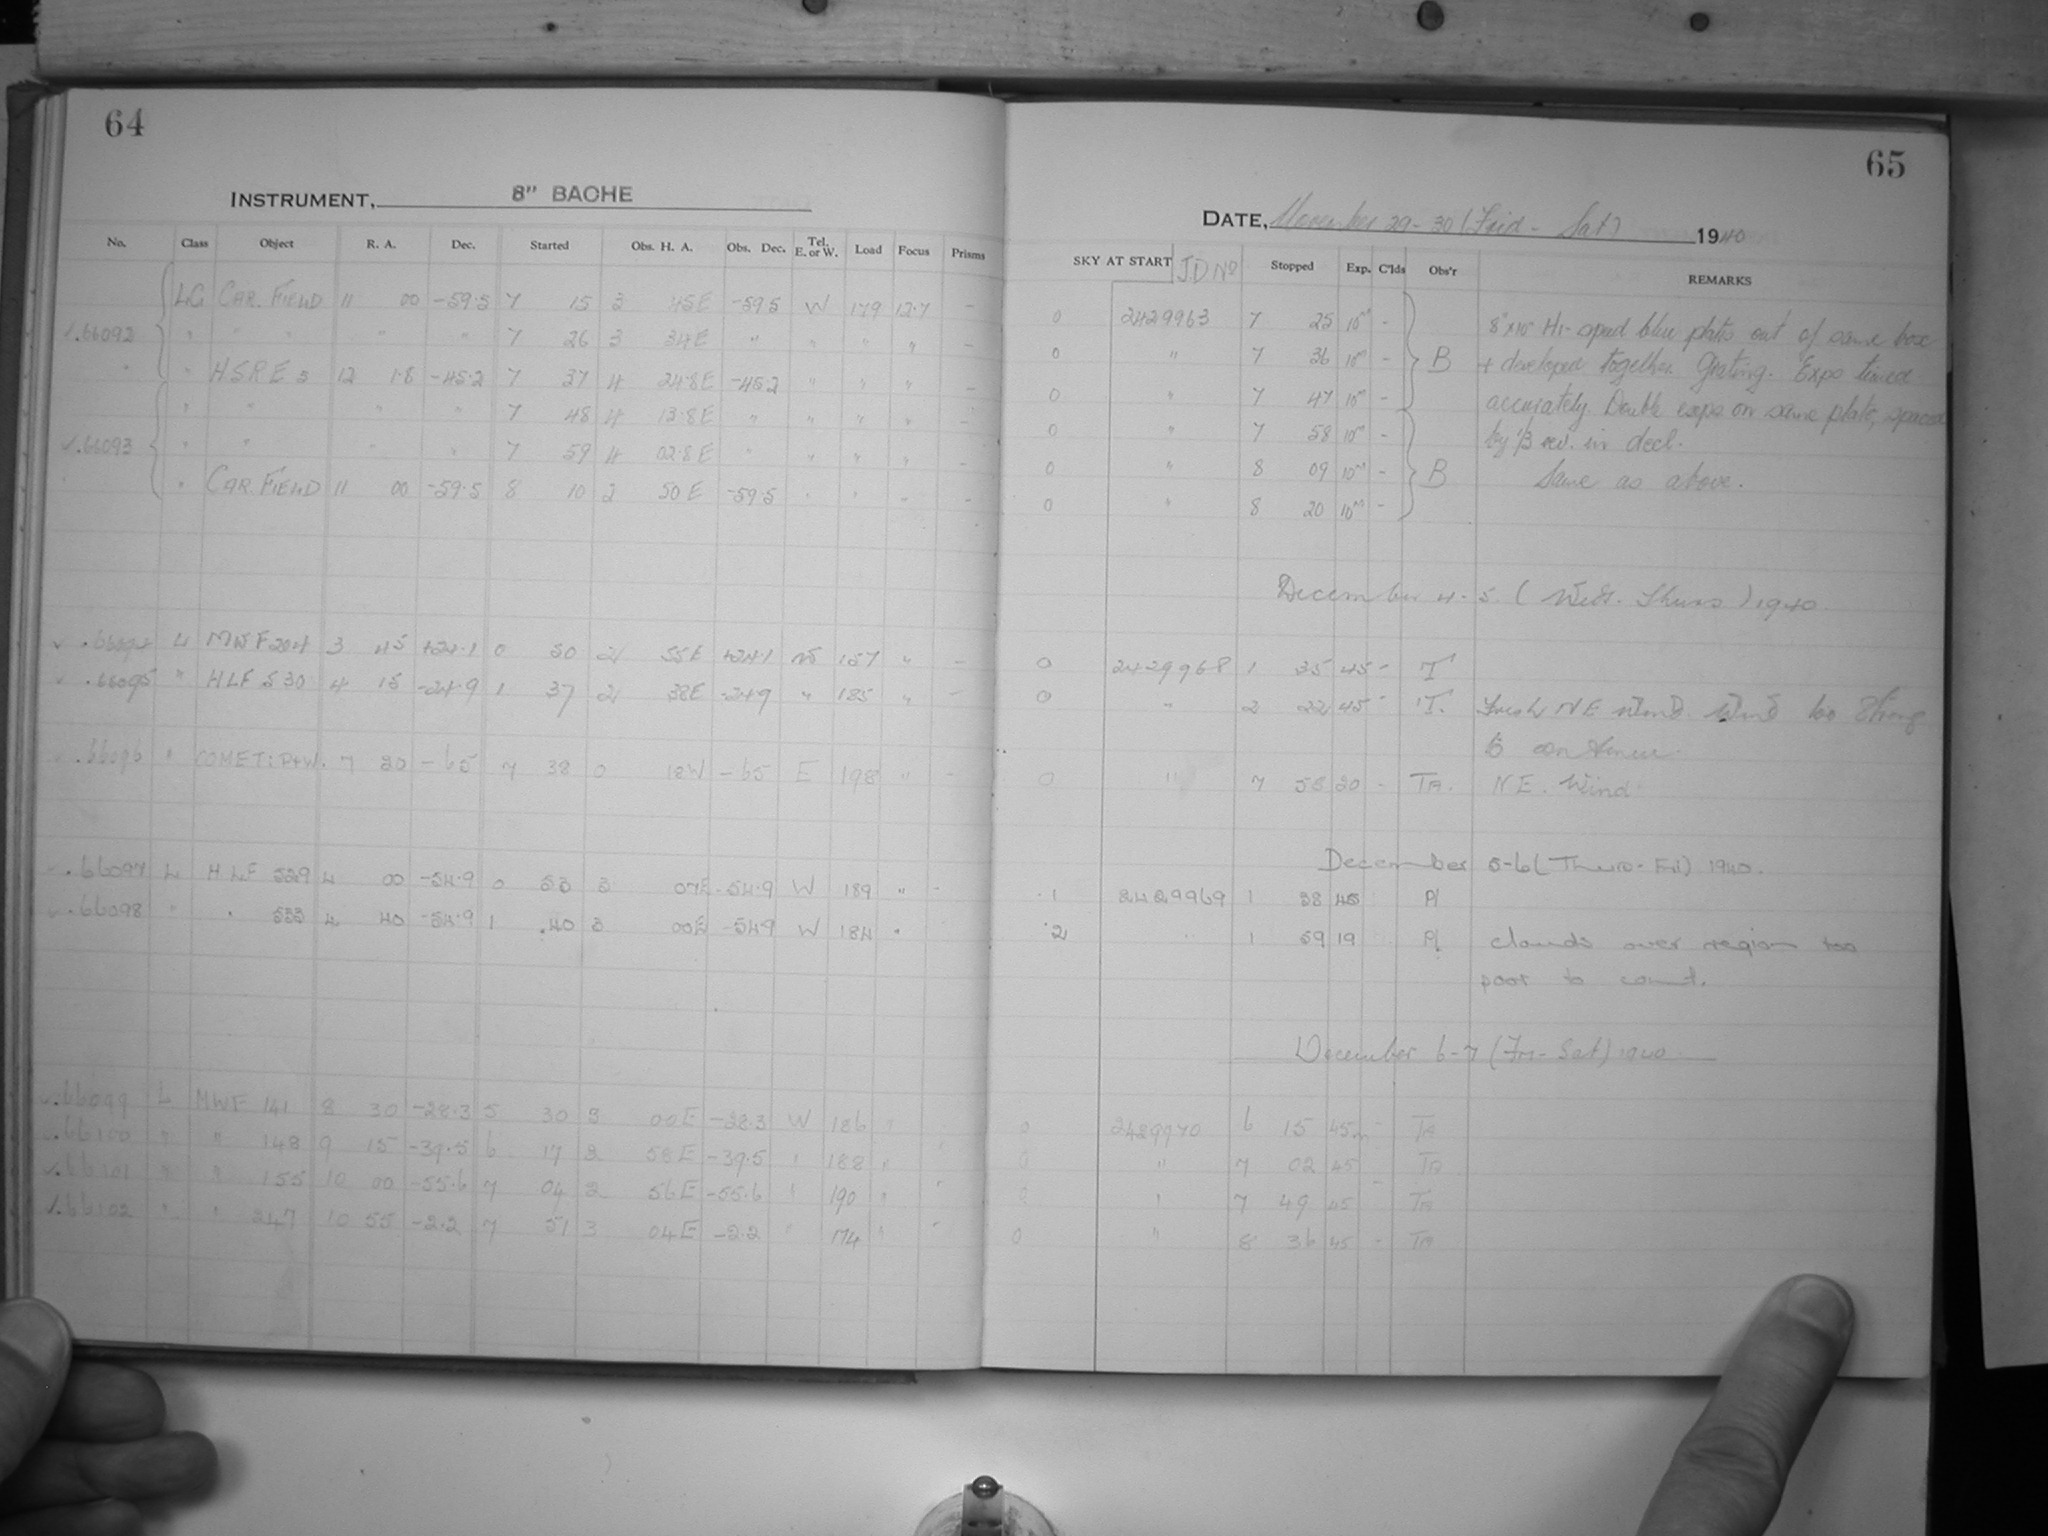 64
INSTRUMENT, 8" BACHE
No. Class Object R. A. Dec. Started Obs. H. A. Obs. Dec. Tel. E. or W. Load Focus Prisms
LG CAR. FIELD 11 00 -59.5 7 15 3 45E -59.5 W 179 12.7 -
✓.66092 " " " " 7 26 3 34E " " " " -
" H.S.R.E 5 12 1.8 -45.2 7 37 4 24.8E -45.2 " " " -
" " " " 7 48 4 13.8E " " " " -
✓.66093 " " " " 7 59 4 02.8E " " " " -
" CAR. FIELD 11 00 -59.5 8 10 2 50E -59.5 " " " -
✓ .66094 L MWF 204 3 45 +24.1 0 50 2 55E +24.1 W 157 " -
✓ .66095 " HLF 530 4 15 -24.9 1 37 2 38E -24.9 " 185 " -
✓ .66096 " COMET: 7 20 -65 7 38 0 18W -65 E 198 " -
✓ .66097 L HLF 529 4 00 -54.9 0 53 3 07E -54.9 W 189 " -
✓ .66098 " " 533 4 40 -54.9 1 40 3 00E -54.9 W 184 "
✓.66099 L MWF 141 8 30 -28.3 5 30 3 00E -28.3 W 186 "
✓.66100 " " 148 9 15 -39.5 6 17 2 58E -39.5 " 188 " "
✓.66101 " " 155 10 00 -55.6 7 04 2 56E -55.6 " 190 " "
✓.66102 " " 247 10 55 -2.2 7 51 3 04E -2.2 " 174 " "
65
DATE, November 29-30 (Frid - Sat) 1940
SKY AT START JD No Stopped Exp. C'lds Obs'r REMARKS
0 2429963 7 25 10m - 8"x10" Hi-speed blue plates out of same box
0 " 7 36 10m - B + developed together. Grating. Expo timed
0 " 7 47 10m - accurately. Double expo on same plate, spaced
0 " 7 58 10m - by 1/3 rev. in decl.
0 " 8 09 10m - B Same as above.
0 " 8 20 10m -
December 4-5 (Wed. Thurs) 1940.
0 2429968 1 35 45 - T
0 " 2 22 45 - T. Fresh NE wind wind too strong
to continue.
0 " 7 58 20 - TA. NE. Wind
December 5-6 (Thurs-Fri) 1940.
1 2429969 1 38 45
2 " 1 59 19 clouds over region too
poor to count.
December 6-7 (Fri-Sat) 1940
0 2429970 6 15 45m - TA
0 " 7 02 45 TA
0 " 7 49 45 - TA
0 " 8 36 45 - TA